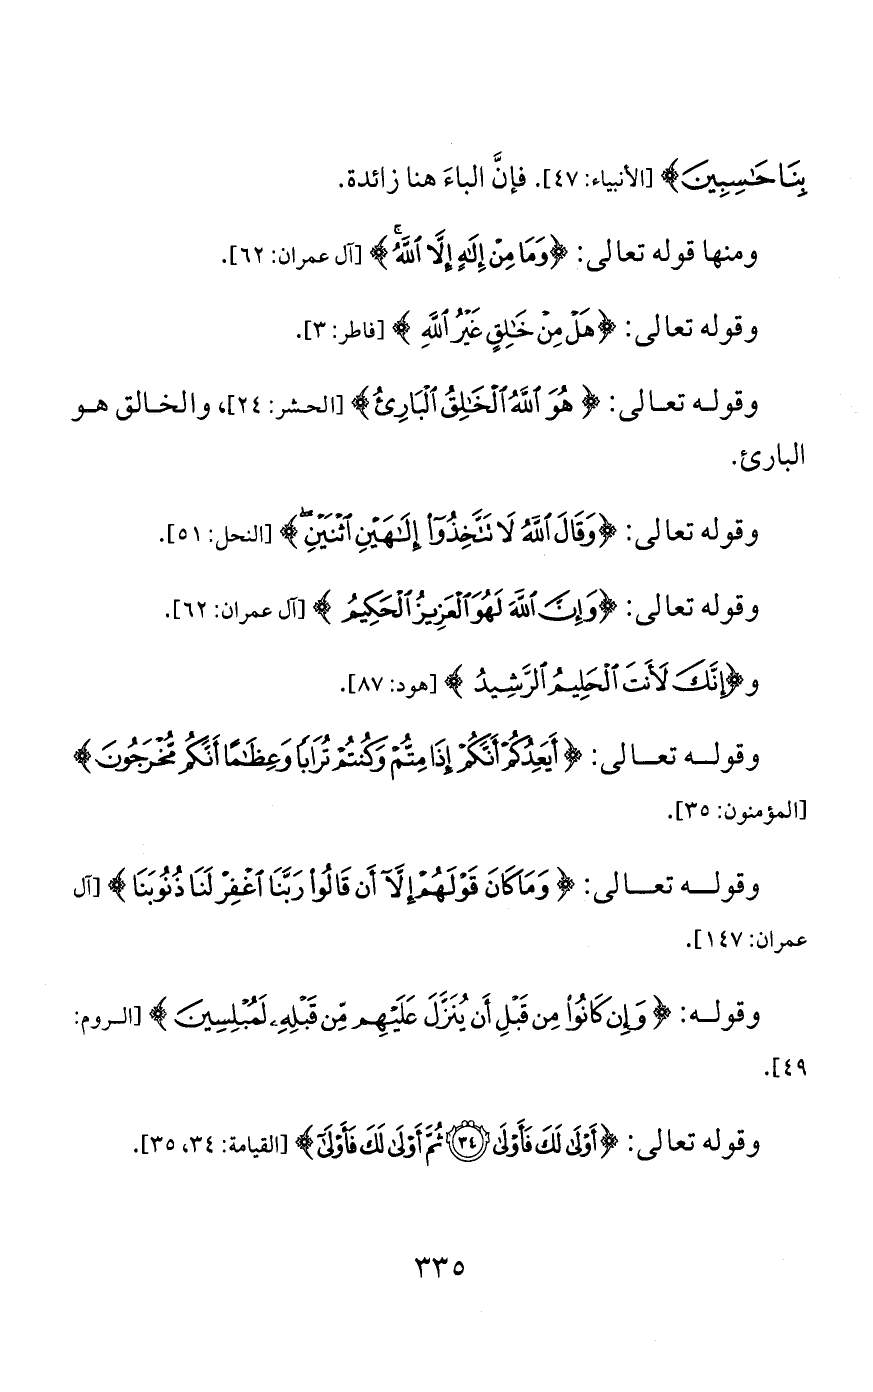 بِنَا حَٰسِبِينَ﴾ [الأنبياء: ٤٧]. فإنَّ الباءَ هنا زائدة.
ومنها قوله تعالى: ﴿وَمَا مِنْ إِلَٰهٍ إِلَّا ٱللَّهُۚ﴾ [آل عمران: ٦٢].
وقوله تعالى: ﴿هَلْ مِنْ خَٰلِقٍ غَيْرُ ٱللَّهِ﴾ [فاطر: ٣].
وقوله تعالى: ﴿هُوَ ٱللَّهُ ٱلْخَٰلِقُ ٱلْبَارِئُ﴾ [الحشر: ٢٤]، والخالق هو
البارئ.
وقوله تعالى: ﴿وَقَالَ ٱللَّهُ لَا تَتَّخِذُوٓا۟ إِلَٰهَيْنِ ٱثْنَيْنِۖ﴾ [النحل: ٥١].
وقوله تعالى: ﴿وَإِنَّ ٱللَّهَ لَهُوَ ٱلْعَزِيزُ ٱلْحَكِيمُ﴾ [آل عمران: ٦٢].
و﴿إِنَّكَ لَأَنتَ ٱلْحَلِيمُ ٱلرَّشِيدُ﴾ [هود: ٨٧].
وقوله تعالى: ﴿أَيَعِدُكُمْ أَنَّكُمْ إِذَا مِتُّمْ وَكُنتُمْ تُرَابًا وَعِظَٰمًا أَنَّكُم مُّخْرَجُونَ﴾
[المؤمنون: ٣٥].
وقوله تعالى: ﴿وَمَا كَانَ قَوْلَهُمْ إِلَّآ أَن قَالُوا۟ رَبَّنَا ٱغْفِرْ لَنَا ذُنُوبَنَا﴾ [آل
عمران: ١٤٧].
وقوله: ﴿وَإِن كَانُوا۟ مِن قَبْلِ أَن يُنَزَّلَ عَلَيْهِم مِّن قَبْلِهِۦ لَمُبْلِسِينَ﴾ [الروم:
٤٩].
وقوله تعالى: ﴿أَوْلَىٰ لَكَ فَأَوْلَىٰ ٣٤ ثُمَّ أَوْلَىٰ لَكَ فَأَوْلَىٰٓ﴾ [القيامة: ٣٤، ٣٥].
٣٣٥